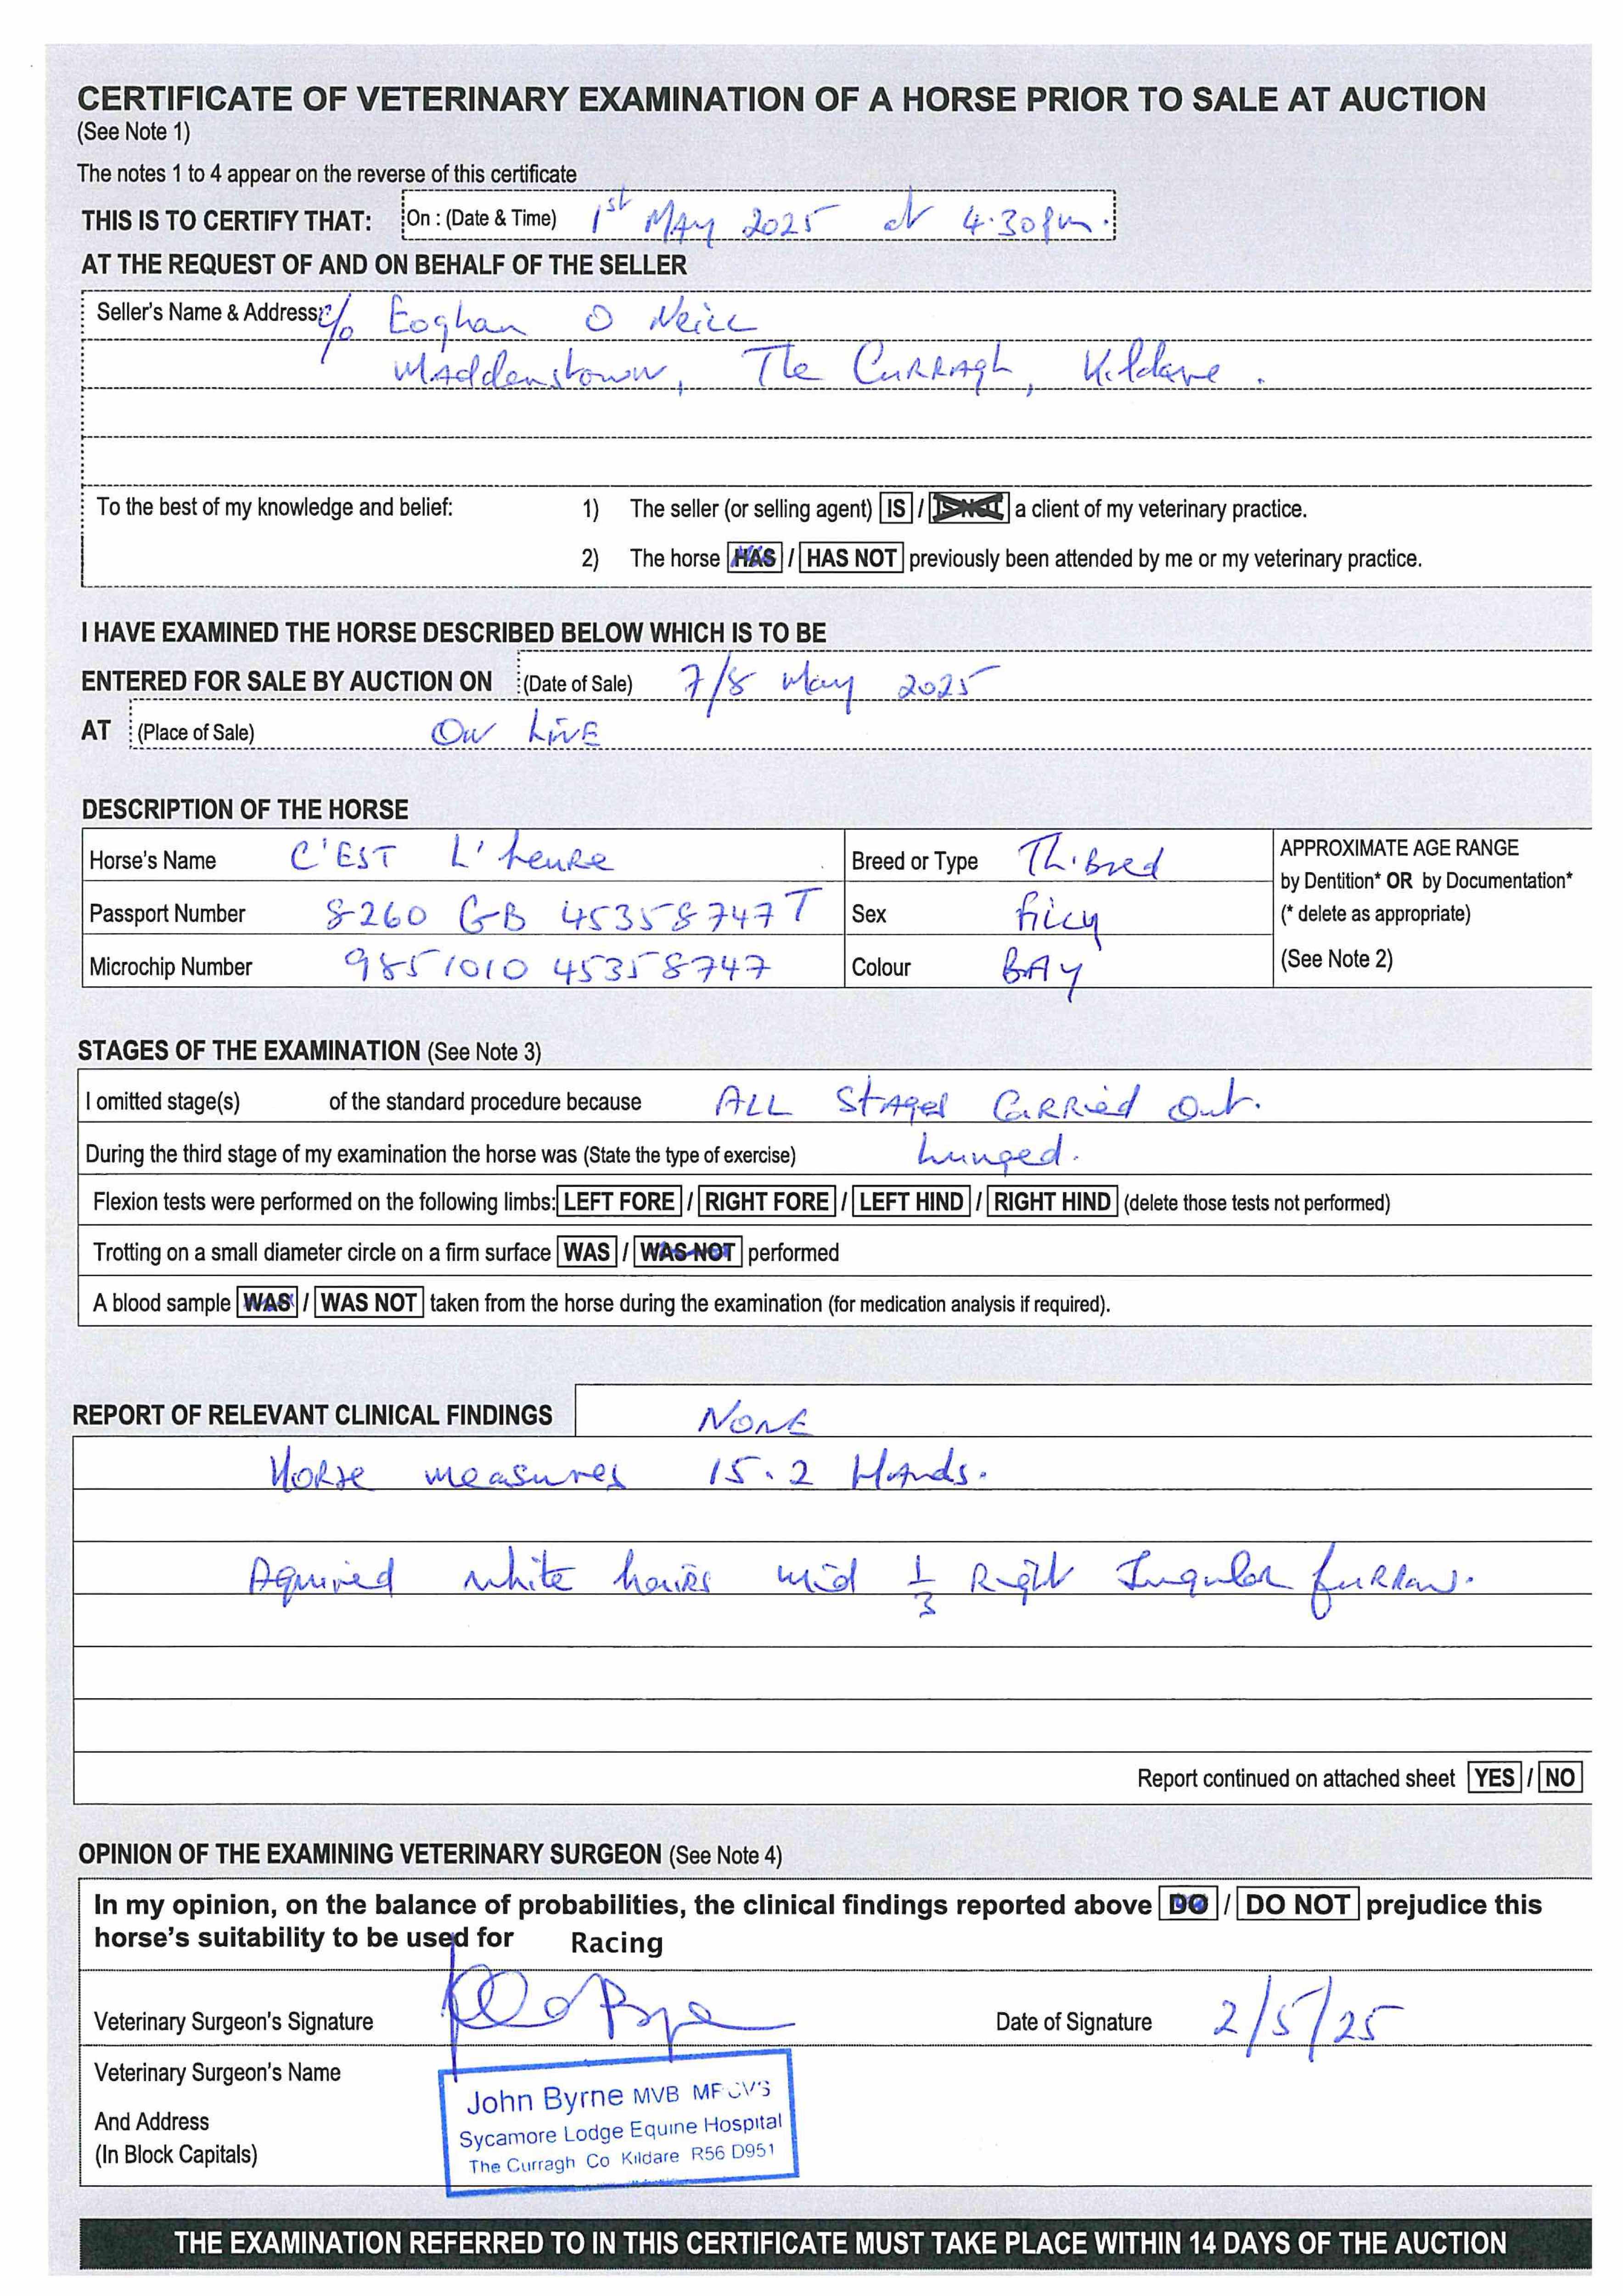 CERTIFICATE OF VETERINARY EXAMINATION OF A HORSE PRIOR TO SALE AT AUCTION
(See Note 1)
The notes 1 to 4 appear on the reverse of this certificate
THIS IS TO CERTIFY THAT: On : (Date & Time) 1st MAY 2025 at 4.30pm.
AT THE REQUEST OF AND ON BEHALF OF THE SELLER
Seller's Name & Address: c/o Eoghan O Neill
Maddenstown, The Curragh, Kildare.
To the best of my knowledge and belief: 1) The seller (or selling agent) IS / IS NOT a client of my veterinary practice.
2) The horse HAS / HAS NOT previously been attended by me or my veterinary practice.
I HAVE EXAMINED THE HORSE DESCRIBED BELOW WHICH IS TO BE
ENTERED FOR SALE BY AUCTION ON (Date of Sale) 7/8 May 2025
AT (Place of Sale) ON LiNE
DESCRIPTION OF THE HORSE
Horse's Name C'EST L'heure Breed or Type Th.Bred APPROXIMATE AGE RANGE
by Dentition* OR by Documentation*
Passport Number 8260 GB 45358747T Sex filly (* delete as appropriate)
Microchip Number 9851010 45358747 Colour BAY (See Note 2)
STAGES OF THE EXAMINATION (See Note 3)
I omitted stage(s) of the standard procedure because ALL Stages Carried Out.
During the third stage of my examination the horse was (State the type of exercise) Lunged.
Flexion tests were performed on the following limbs: LEFT FORE / RIGHT FORE / LEFT HIND / RIGHT HIND (delete those tests not performed)
Trotting on a small diameter circle on a firm surface WAS / WAS NOT performed
A blood sample WAS / WAS NOT taken from the horse during the examination (for medication analysis if required).
REPORT OF RELEVANT CLINICAL FINDINGS NONE
Horse measures 15.2 Hands.
Aquired white hairs mid 1/3 Right Jugular furrow.
Report continued on attached sheet YES / NO
OPINION OF THE EXAMINING VETERINARY SURGEON (See Note 4)
In my opinion, on the balance of probabilities, the clinical findings reported above DO / DO NOT prejudice this
horse's suitability to be used for Racing
Veterinary Surgeon's Signature Date of Signature 2/5/25
Veterinary Surgeon's Name
And Address
(In Block Capitals)
John Byrne MVB MRCVS
Sycamore Lodge Equine Hospital
The Curragh Co Kildare R56 D951
THE EXAMINATION REFERRED TO IN THIS CERTIFICATE MUST TAKE PLACE WITHIN 14 DAYS OF THE AUCTION